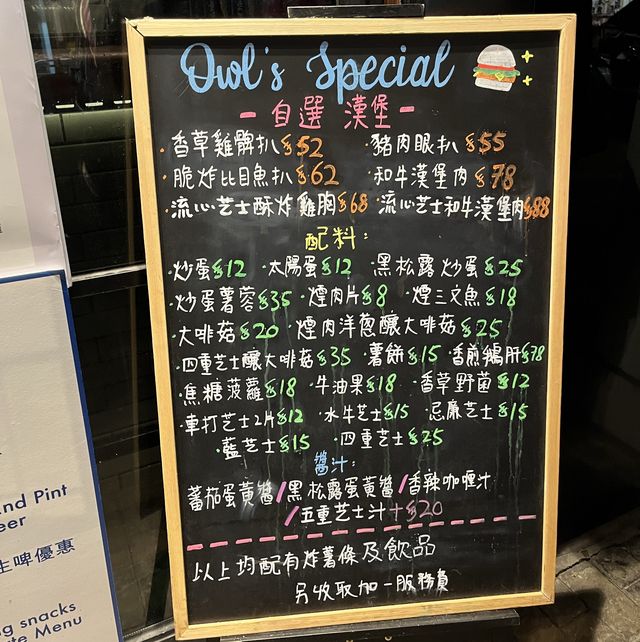 Owl's Special
- 自選 漢堡 -
· 香草雞髀扒 $52 · 豬肉眼扒 $55
· 脆炸比目魚扒 $62 · 和牛漢堡肉 $78
· 流心芝士酥炸雞胸 $68 · 流心芝士和牛漢堡肉 $88
配料:
· 炒蛋 $12 · 太陽蛋 $12 · 黑松露炒蛋 $25
· 炒蛋薯蓉 $35 · 煙肉片 $8 · 煙三文魚 $18
· 大啡菇 $20 · 煙肉洋蔥釀大啡菇 $25
· 四重芝士釀大啡菇 $35 · 薯餅 $15 · 香煎鵝肝 $78
· 焦糖菠蘿 $18 · 牛油果 $18 · 香草野菌 $12
· 車打芝士2片 $12 · 水牛芝士 $15 · 忌廉芝士 $15
· 藍芝士 $15 · 四重芝士 $25
醬汁:
蕃茄蛋黃醬/黑松露蛋黃醬/香辣咖喱汁
/五重芝士汁+$20
以上均配有炸薯條及飲品
另收取加一服務費
nd Pint
eer
生啤優惠
ng snacks
te Menu